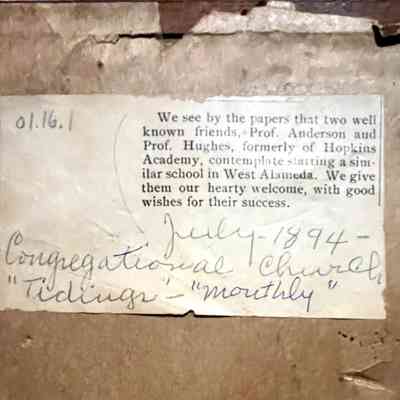 01.16.1
We see by the papers that two well
known friends, Prof. Anderson and
Prof. Hughes, formerly of Hopkins
Academy, contemplate starting a sim-
ilar school in West Alameda. We give
them our hearty welcome, with good
wishes for their success.
July-1894-
Congregational Church
"Tidings" - "monthly"